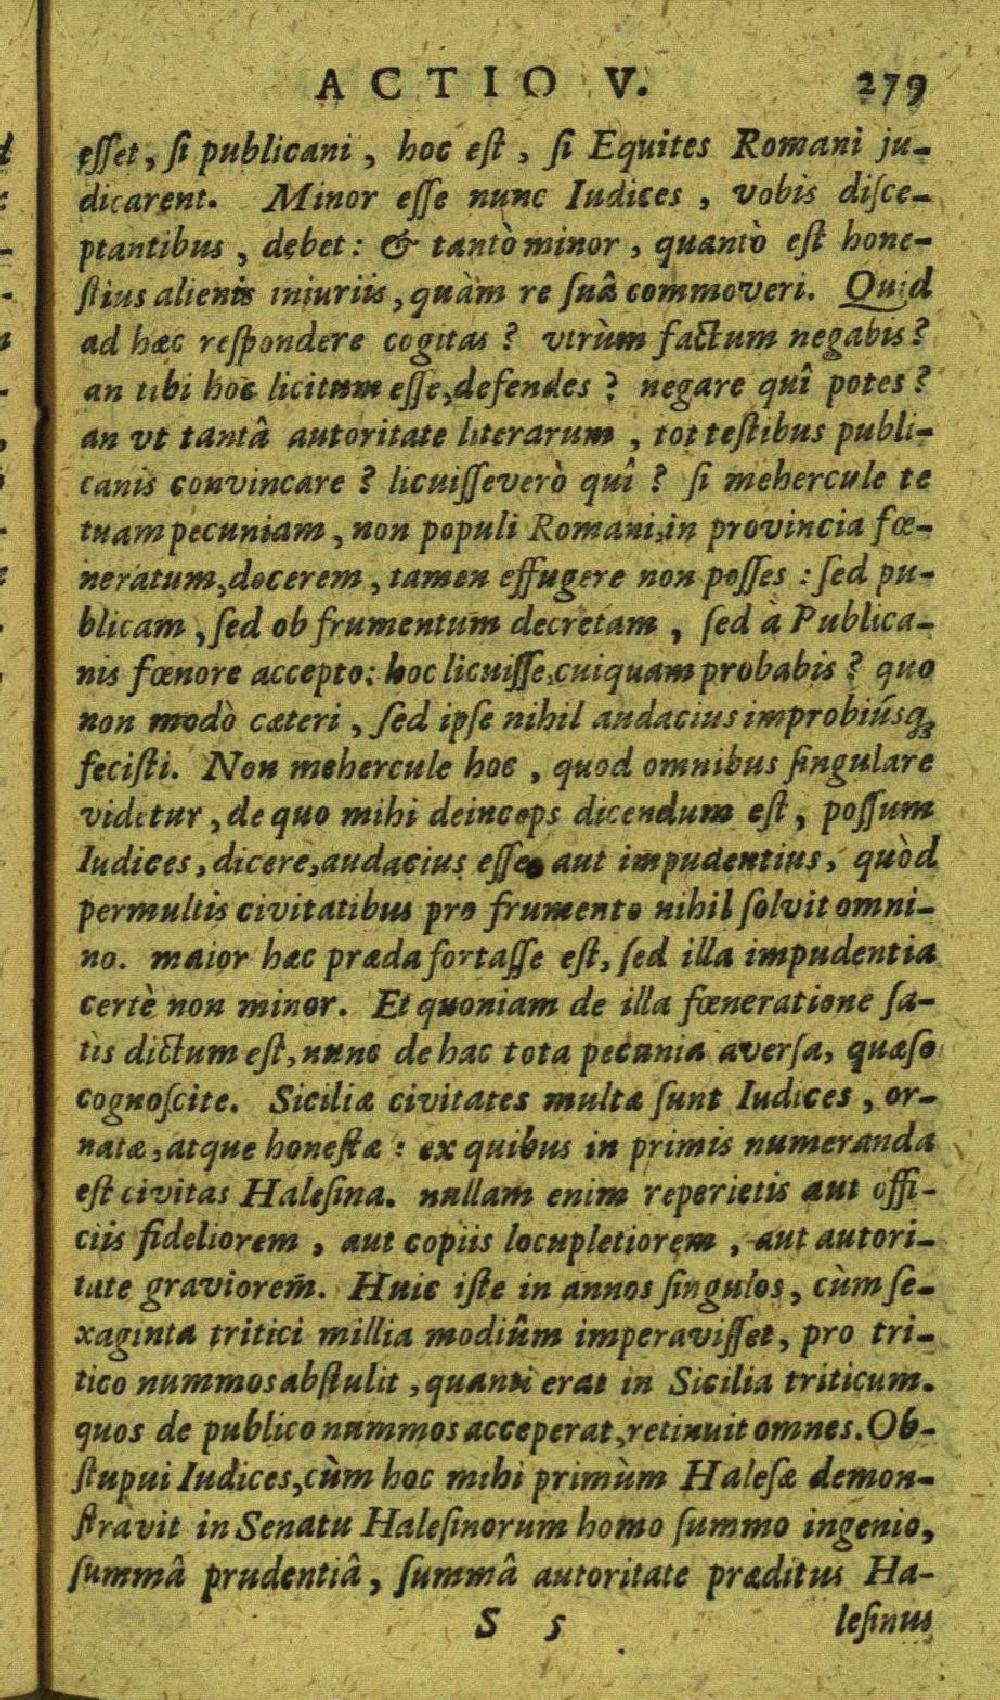 ACTIO V. 279
esset, si publicani, hoc est, si Equites Romani ju-
dicarent. Minor esse nunc Iudices, vobis disce-
ptantibus, debet: & tantò minor, quantò est hone-
stius alienis iniuriis, quàm re suâ commoveri. Quid
ad hæc respondere cogitas? vtrùm factum negabis?
an tibi hoc licitum esse, defendes? negare quî potes?
an vt tantâ autoritate literarum, tot testibus publi-
canis convincare? licuisse verò quî? si mehercule te
tuam pecuniam, non populi Romani, in provincia fœ-
neratum, docerem, tamen effugere non posses: sed pu-
blicam, sed ob frumentum decretam, sed à Publica-
nis fœnore accepto: hoc licuisse, cuiquam probabis? quo
non modò cæteri, sed ipse nihil audacius improbiúsq;
fecisti. Non mehercule hoc, quod omnibus singulare
videtur, de quo mihi deinceps dicendum est, possum
Iudices, dicere, audacius esse, aut impudentius, quòd
permultis civitatibus pro frumento nihil solvit omni-
no. maior hæc præda fortasse est, sed illa impudentia
certè non minor. Et quoniam de illa fœneratione sa-
tis dictum est, nunc de hac tota pecunia aversa, quæso
cognoscite. Siciliæ civitates multæ sunt Iudices, or-
natæ, atque honestæ: ex quibus in primis numeranda
est civitas Halesina. nullam enim reperietis aut offi-
ciis fideliorem, aut copiis locupletiorem, aut autori-
tate graviorem. Huic iste in annos singulos, cùm se-
xaginta tritici millia modiûm imperavisset, pro tri-
tico nummos abstulit, quanti erat in Sicilia triticum.
quos de publico nummos acceperat, retinuit omnes. Ob-
stupui Iudices, cùm hoc mihi primùm Halesæ demon-
stravit in Senatu Halesinorum homo summo ingenio,
summâ prudentiâ, summâ autoritate præditus Ha-
S 5 lesinus